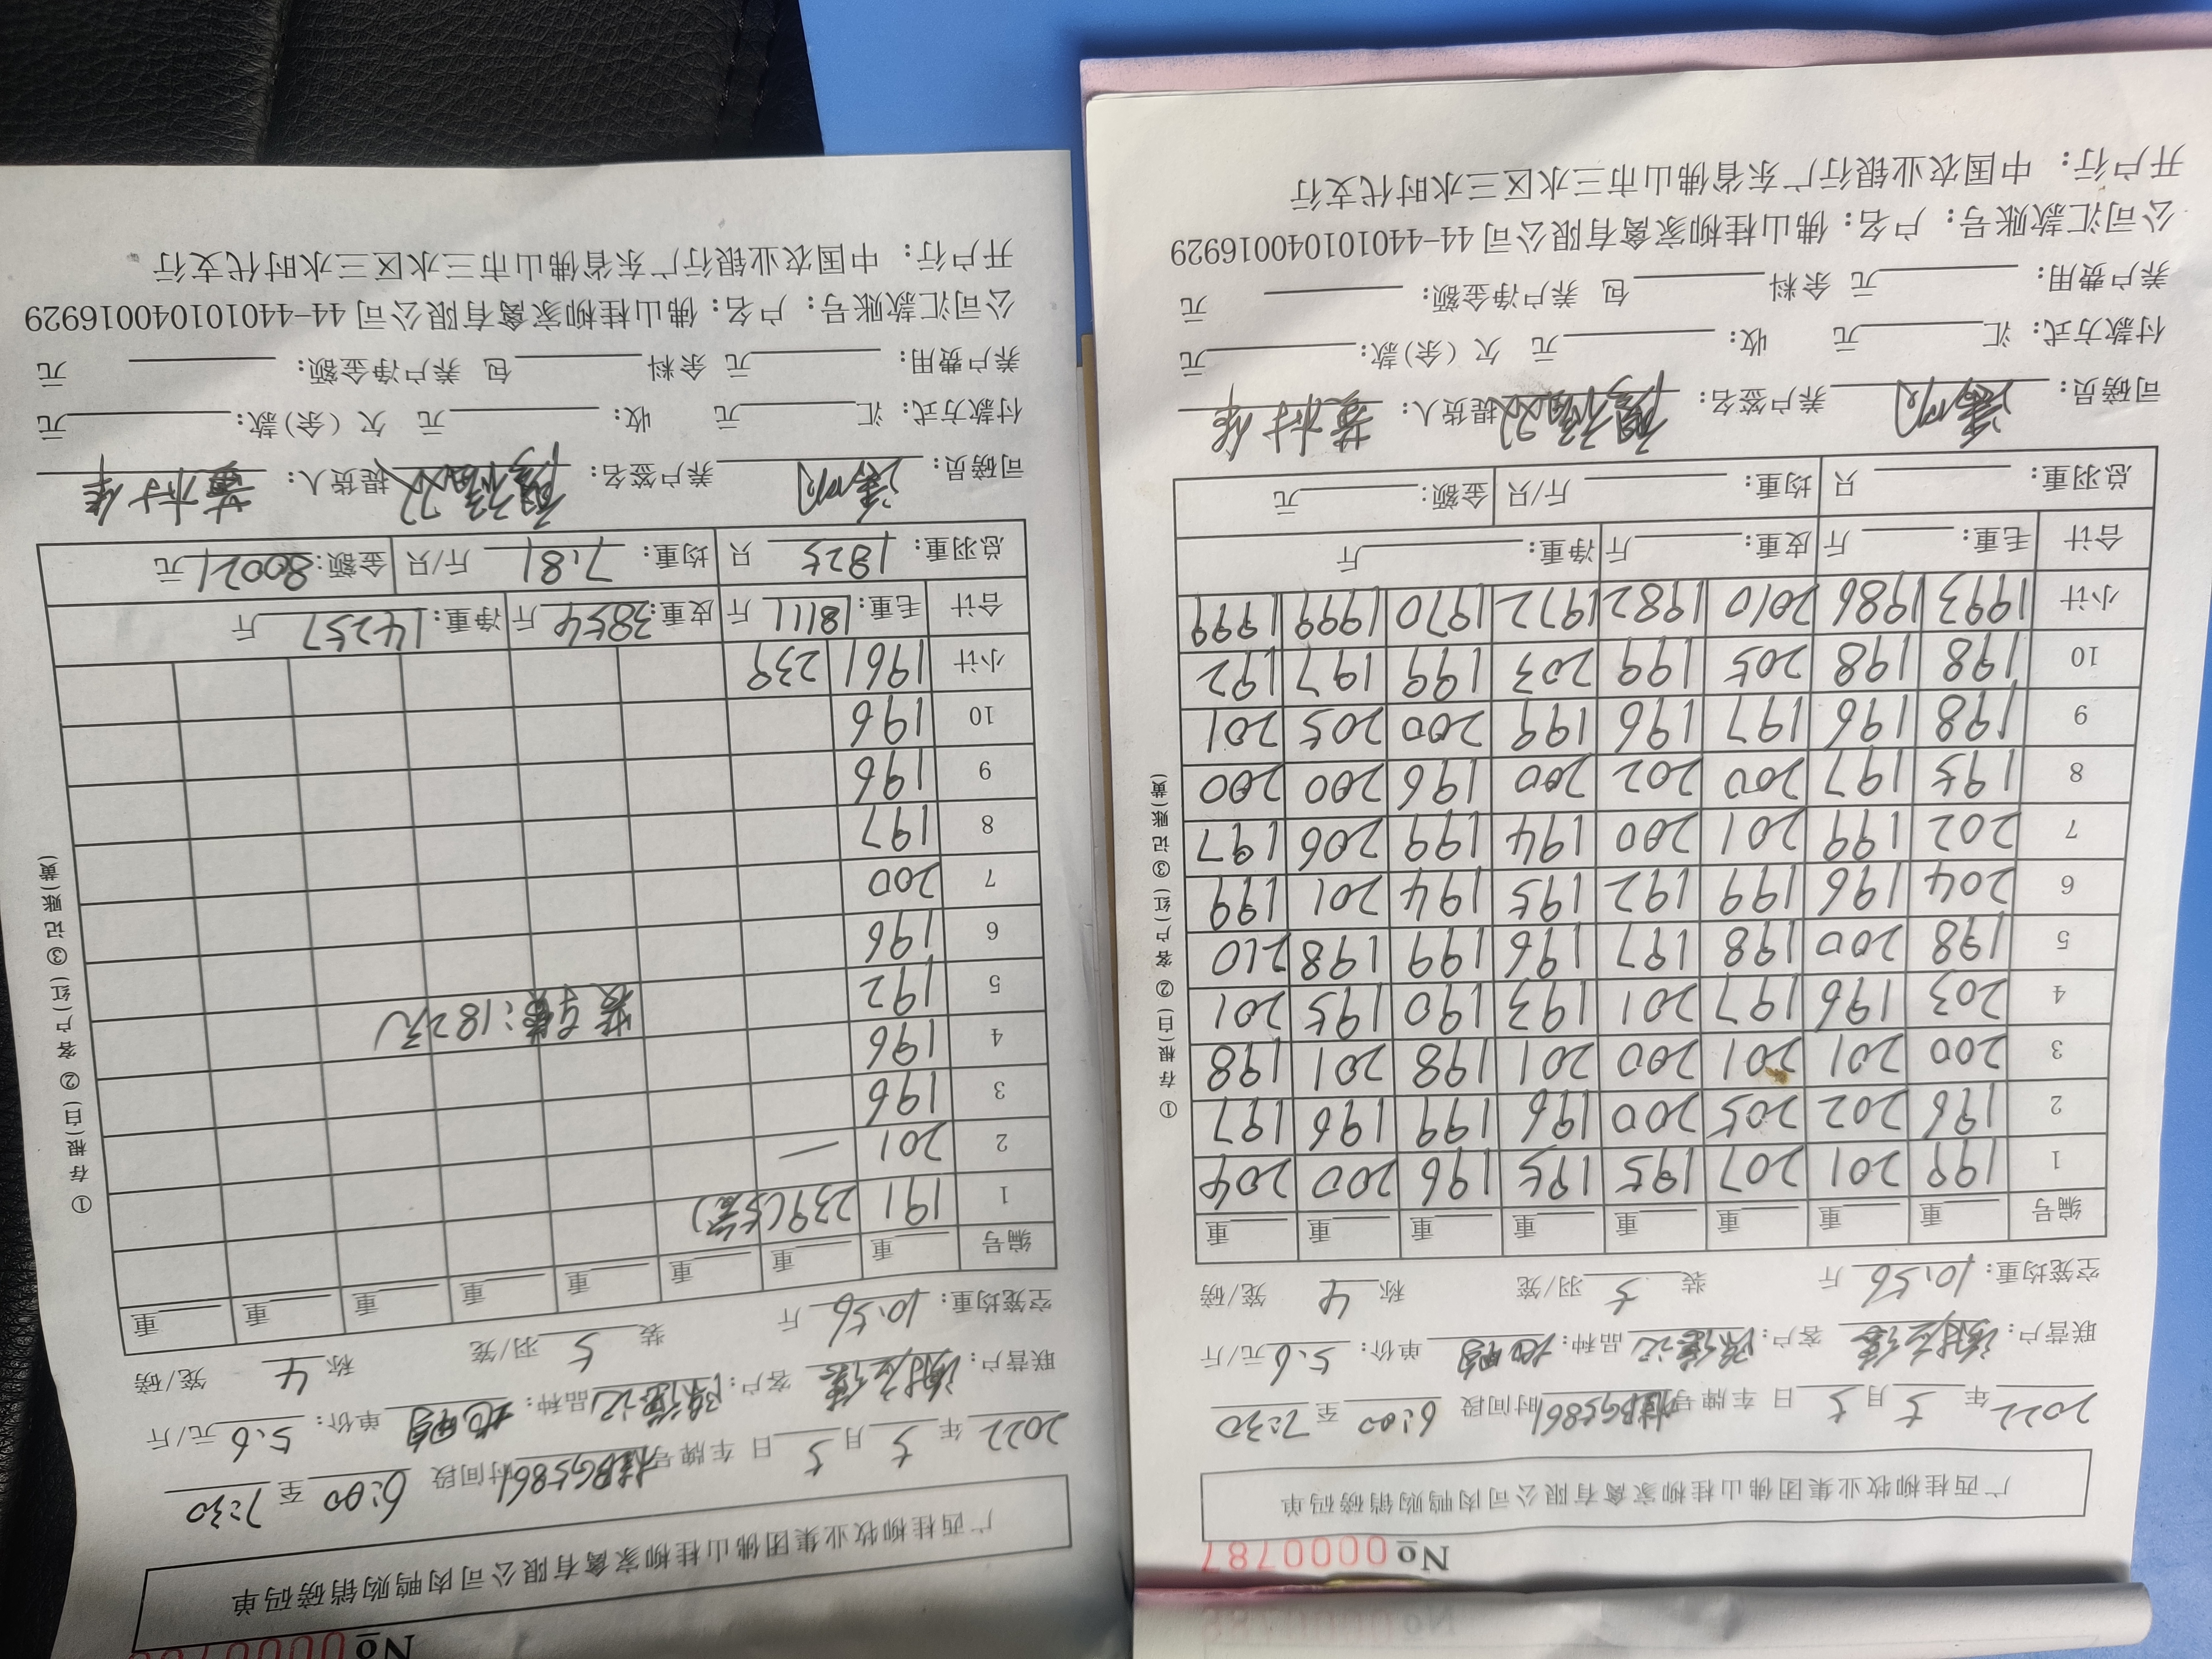 No 0000787
广西桂柳牧业集团佛山桂柳家禽有限公司肉鸭购销磅码单
2022 年 5 月 5 日 车牌号 桂BG5861 时间段 6:00 至 7:30
联营户: 客户: 品种: 单价: 5.6 元/斤
空笼均重: 10.56 斤 装 5 羽/笼 称 4 笼/磅
编号 重 重 重 重 重 重 重 重
1 199 201 207 195 195 196 200 204
2 196 202 205 200 196 199 196 197
3 200 201 201 200 201 198 201 198
4 203 196 197 201 193 190 195 201
5 198 200 198 197 196 199 198 210
6 204 196 199 192 195 194 201 199
7 202 199 201 200 194 199 206 197
8 195 197 200 202 200 196 200 200
9 198 196 197 196 199 200 205 201
10 198 198 205 199 203 199 197 192
小计 1993 1986 2010 1982 1972 1970 1999 1999
合计 毛重: 斤 皮重: 斤 净重: 斤
总羽重: 只 均重: 斤/只 金额: 元
司磅员: 养户签名: 提货人:
付款方式: 汇 元 收: 元 欠(余)款: 元
养户费用: 元 余料 包 养户净金额: 元
公司汇款账号: 户名: 佛山桂柳家禽有限公司 44-440101040016929
开户行: 中国农业银行广东省佛山市三水区三水时代支行
①存根(白)②客户(红)③记账(黄)
No
广西桂柳牧业集团佛山桂柳家禽有限公司肉鸭购销磅码单
2022 年 5 月 5 日 车牌号 桂BG5861 时间段 6:00 至 7:30
联营户: 客户: 品种: 单价: 5.6 元/斤
空笼均重: 10.56 斤 装 5 羽/笼 称 4 笼/磅
编号 重 重 重 重 重 重 重 重
1 191 239(5笼)
2 201 —
3 196
4 196
5 192
装车费:182元
6 196
7 200
8 197
9 196
10 196
小计 1961 239
合计 毛重: 18111 斤 皮重: 3854 斤 净重: 14257 斤
总羽重: 1825 只 均重: 7.81 斤/只 金额: 80021 元
司磅员: 养户签名: 提货人:
付款方式: 汇 元 收: 元 欠(余)款: 元
养户费用: 元 余料 包 养户净金额: 元
公司汇款账号: 户名: 佛山桂柳家禽有限公司 44-440101040016929
开户行: 中国农业银行广东省佛山市三水区三水时代支行
①存根(白)②客户(红)③记账(黄)